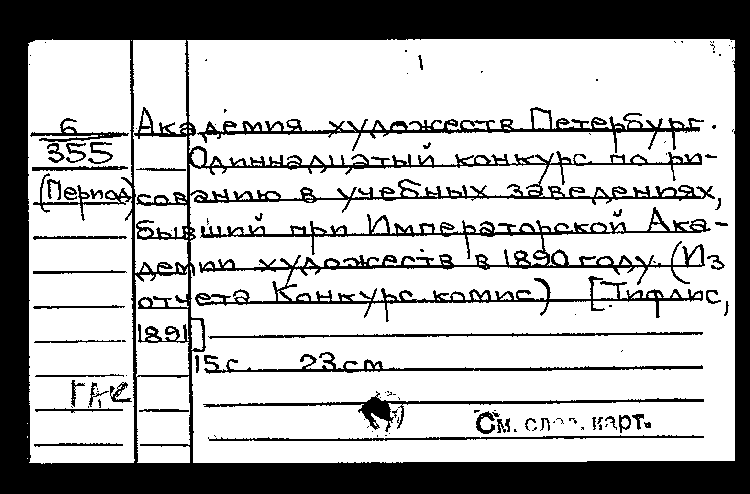 1
6 Академия художеств Петербург.
355 Одиннадцатый конкурс по ри-
(Период) сованию в учебных заведениях,
бывший при Императорской Ака-
демии художеств в 1890 году. (Из
отчета Конкурс. комис.) [Тифлис,
1891]
15 с. 23 см.
ГАК
См. след. карт.